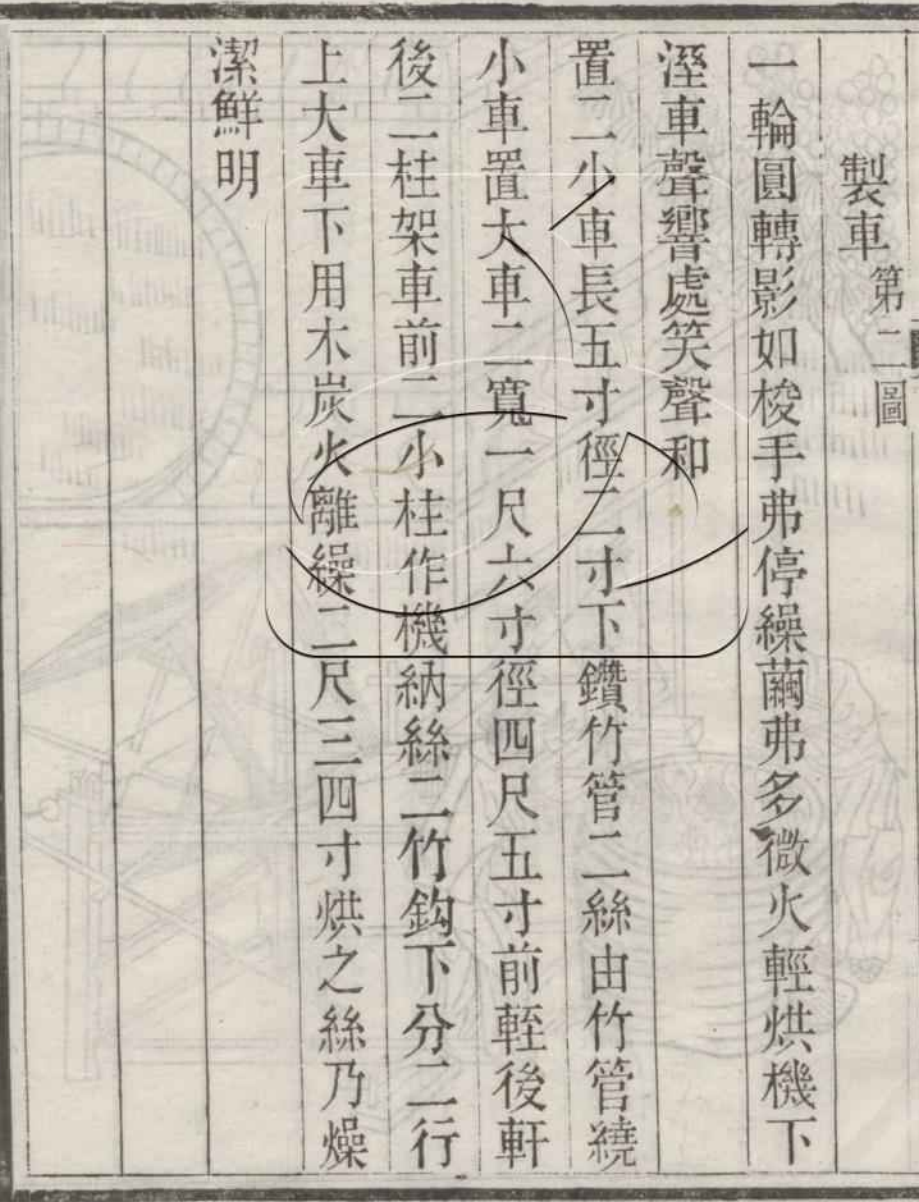 製車第二圖
一輪圓轉影如梭手弗停繰繭弗多微火輕烘機下
溼車聲響處笑聲和
置二少車長五寸徑二寸下鑽竹管二絲由竹管繞
小車置大車二寬一尺六寸徑四尺五寸前輊後軒
後二柱架車前二小柱作機納絲二竹鈎下分二行
上大車下用木炭火離繰二尺三四寸烘之絲乃燥
潔鮮明